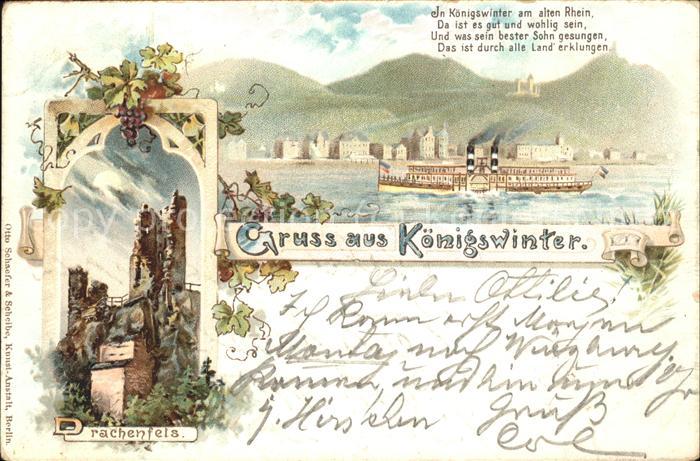 In Königswinter am alten Rhein,
Da ist es gut und wohlig sein,
Und was sein bester Sohn gesungen,
Das ist durch alle Land' erklungen.
Gruss aus Königswinter.
Drachenfels.
Otto Schaefer & Scheibe, Kunst-Anstalt, Berlin.
Liebe Ottilie!
Ich kann erst Morgen
Montag nach Würzburg
kommen, und bin
z. Hirschen Gruß